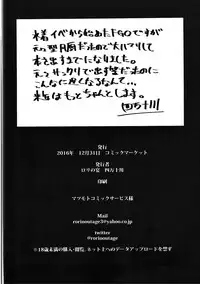 様イベから始めたFGOですが
元々型月厨だったので大ハマりして
本を出すまでになりました。
こんなに長くなるなんて…
次はもっとちゃんとします。
四万十川
発行
2016年　12月31日　コミックマーケット
発行者
ロリの宴　四万十川
印刷
マツモトコミックサービス様
Mail
rorinoutage3@yahoo.co.jp
twitter
@rorinoutage
※18歳未満の購入・閲覧、ネット上へのデータアップロードを禁ず